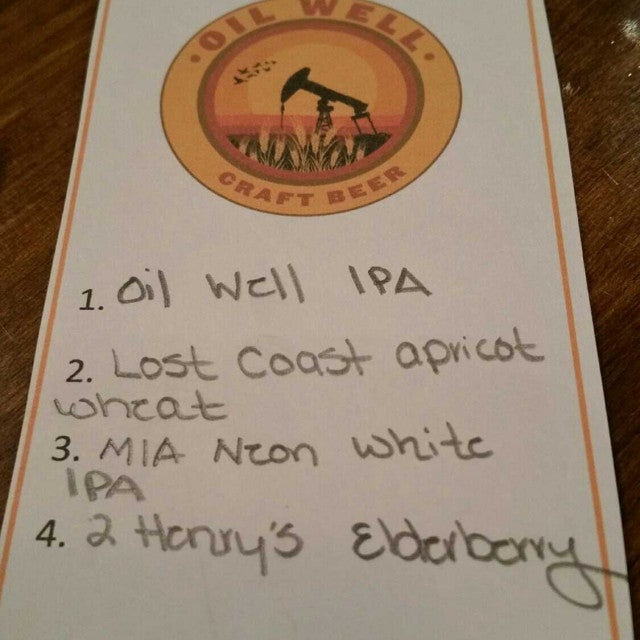 OIL WELL
CRAFT BEER
1. Oil Well IPA
2. Lost Coast apricot
wheat
3. MIA Neon White
IPA
4. 2 Henry's Elderberry